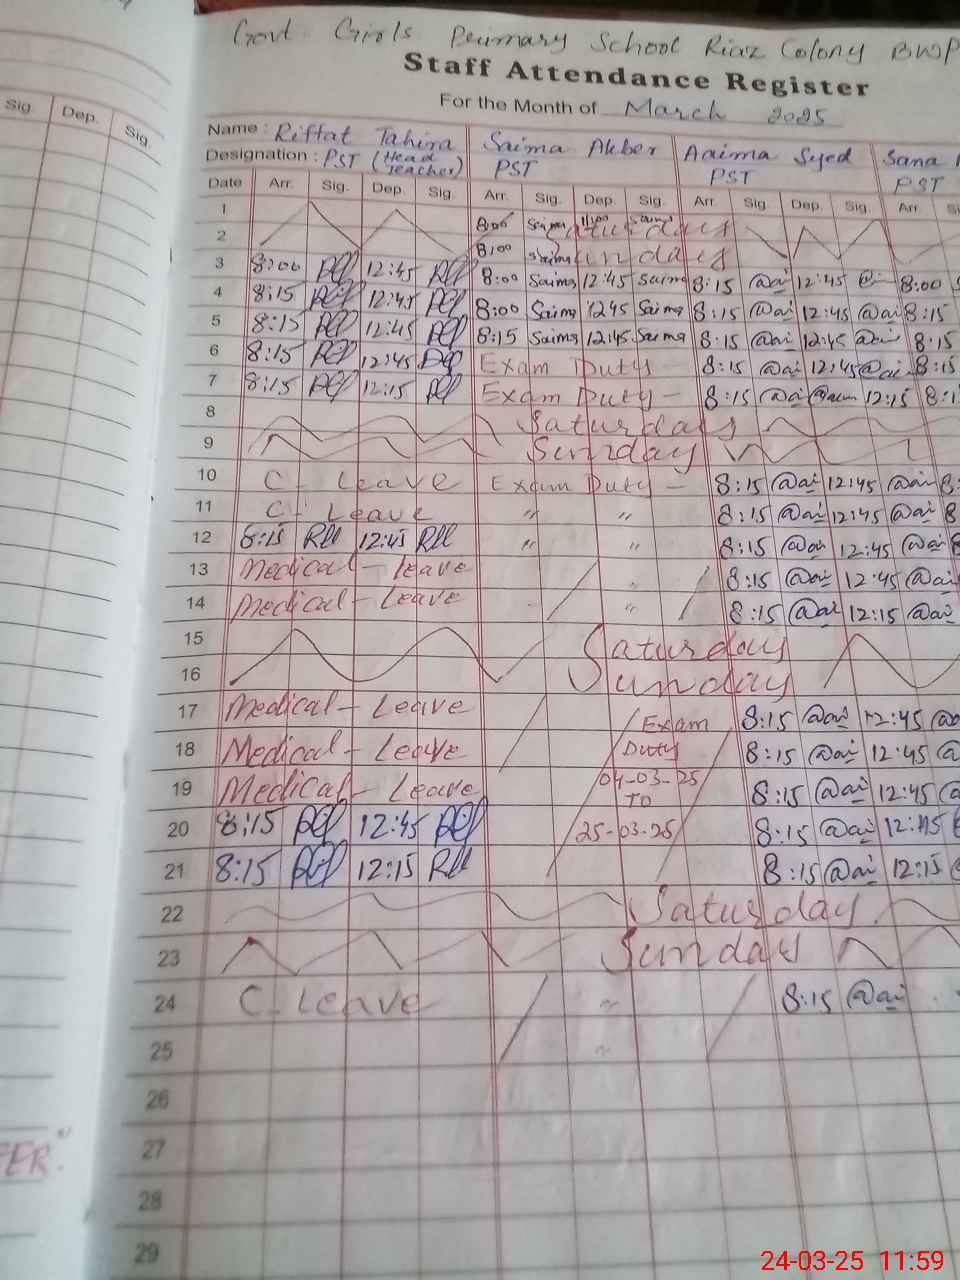 Govt. Girls Primary School Riaz Colony BWP
Staff Attendance Register
For the Month of March 2025
Sig. Dep. Sig.
Name : Riffat Tahira Saima Akber Aaima Syed Sana
Designation : PST (Head Teacher) PST PST PST
Date Arr. Sig. Dep. Sig. Arr. Sig. Dep. Sig. Arr. Sig. Dep. Sig. Arr.
1 8:00 Saima 11:00 Saima Saturday
2 8:00 Saima Sunday
3 8:00 12:45 8:00 Saima 12:45 Saima 8:15 @ai 12:45 8:00
4 8:15 12:45 8:00 Saima 12:45 Saima 8:15 @ai 12:45 @ai 8:15
5 8:15 12:45 8:15 Saima 12:45 Saima 8:15 @ai 12:45 @ai 8:15
6 8:15 12:45 Exam Duty - 8:15 @ai 12:45 @ai 8:15
7 8:15 12:15 Exam Duty - 8:15 @ai 12:15
8 Saturday
9 Sunday
10 C- Leave Exam Duty - 8:15 @ai 12:45 @ai
11 C- Leave " " 8:15 @ai 12:45 @ai
12 8:15 12:45 " " 8:15 @ai 12:45 @ai
13 Medical - Leave " 8:15 @ai 12:45 @ai
14 Medical - Leave " 8:15 @ai 12:15 @ai
15 Saturday
16 Sunday
17 Medical - Leave Exam 8:15 @ai 12:45
18 Medical - Leave Duty 8:15 @ai 12:45
19 Medical - Leave 04-03-25 TO 8:15 @ai 12:45
20 8:15 12:45 25-03-25 8:15 @ai 12:45
21 8:15 12:15 8:15 @ai 12:15
22 Saturday
23 Sunday
24 C- Leave " 8:15 @ai
25 "
26
27
28
29
24-03-25 11:59